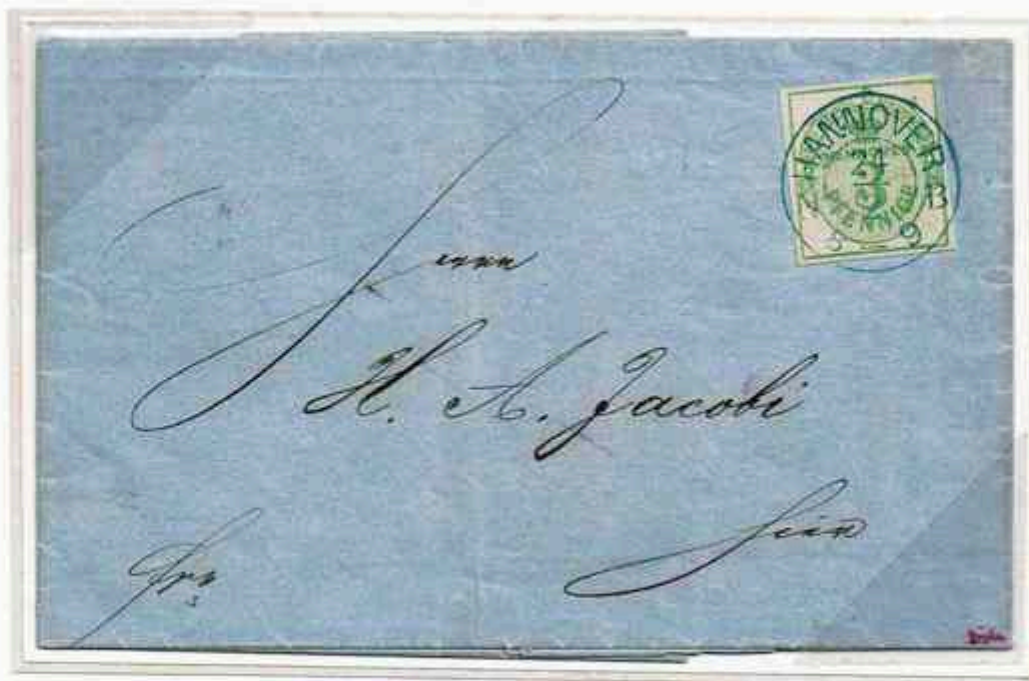 HANNOVER
24
PFENNIG
3 - 9
Herrn
H. A. Jacobi
hier
frn